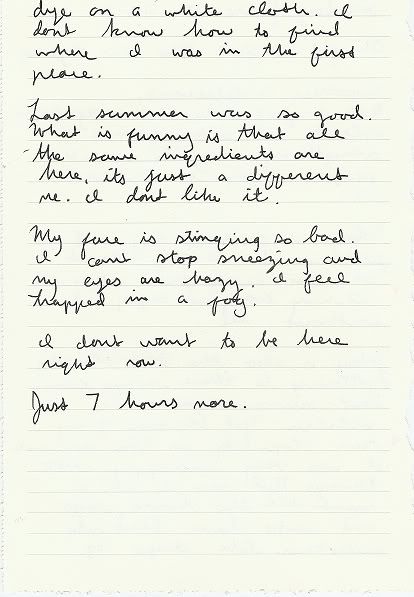 dye on a white cloth. I
dont know how to find
where I was in the first
place.
Last summer was so good.
What is funny is that all
the same ingredients are
here, its just a different
me. I dont like it.
My face is stinging so bad.
I cant stop sneezing and
my eyes are hazy. I feel
trapped in a fog.
I dont want to be here
right now.
Just 7 hours more.